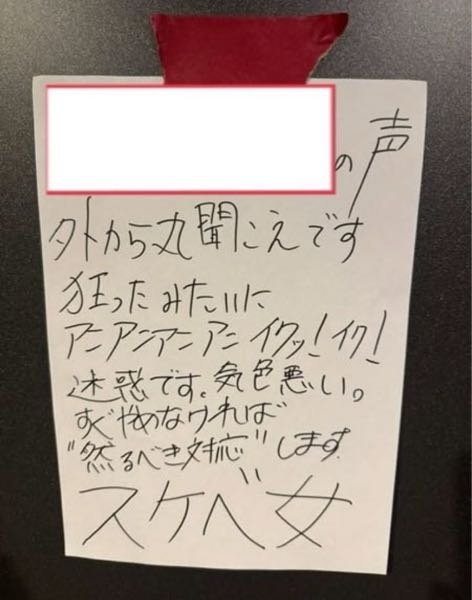 の声
外から丸聞こえです
狂ったみたいに
アンアンアンアンイクッ！イク！
迷惑です。気色悪い。
すぐやめなければ
"然るべき対応"します
スケベ女